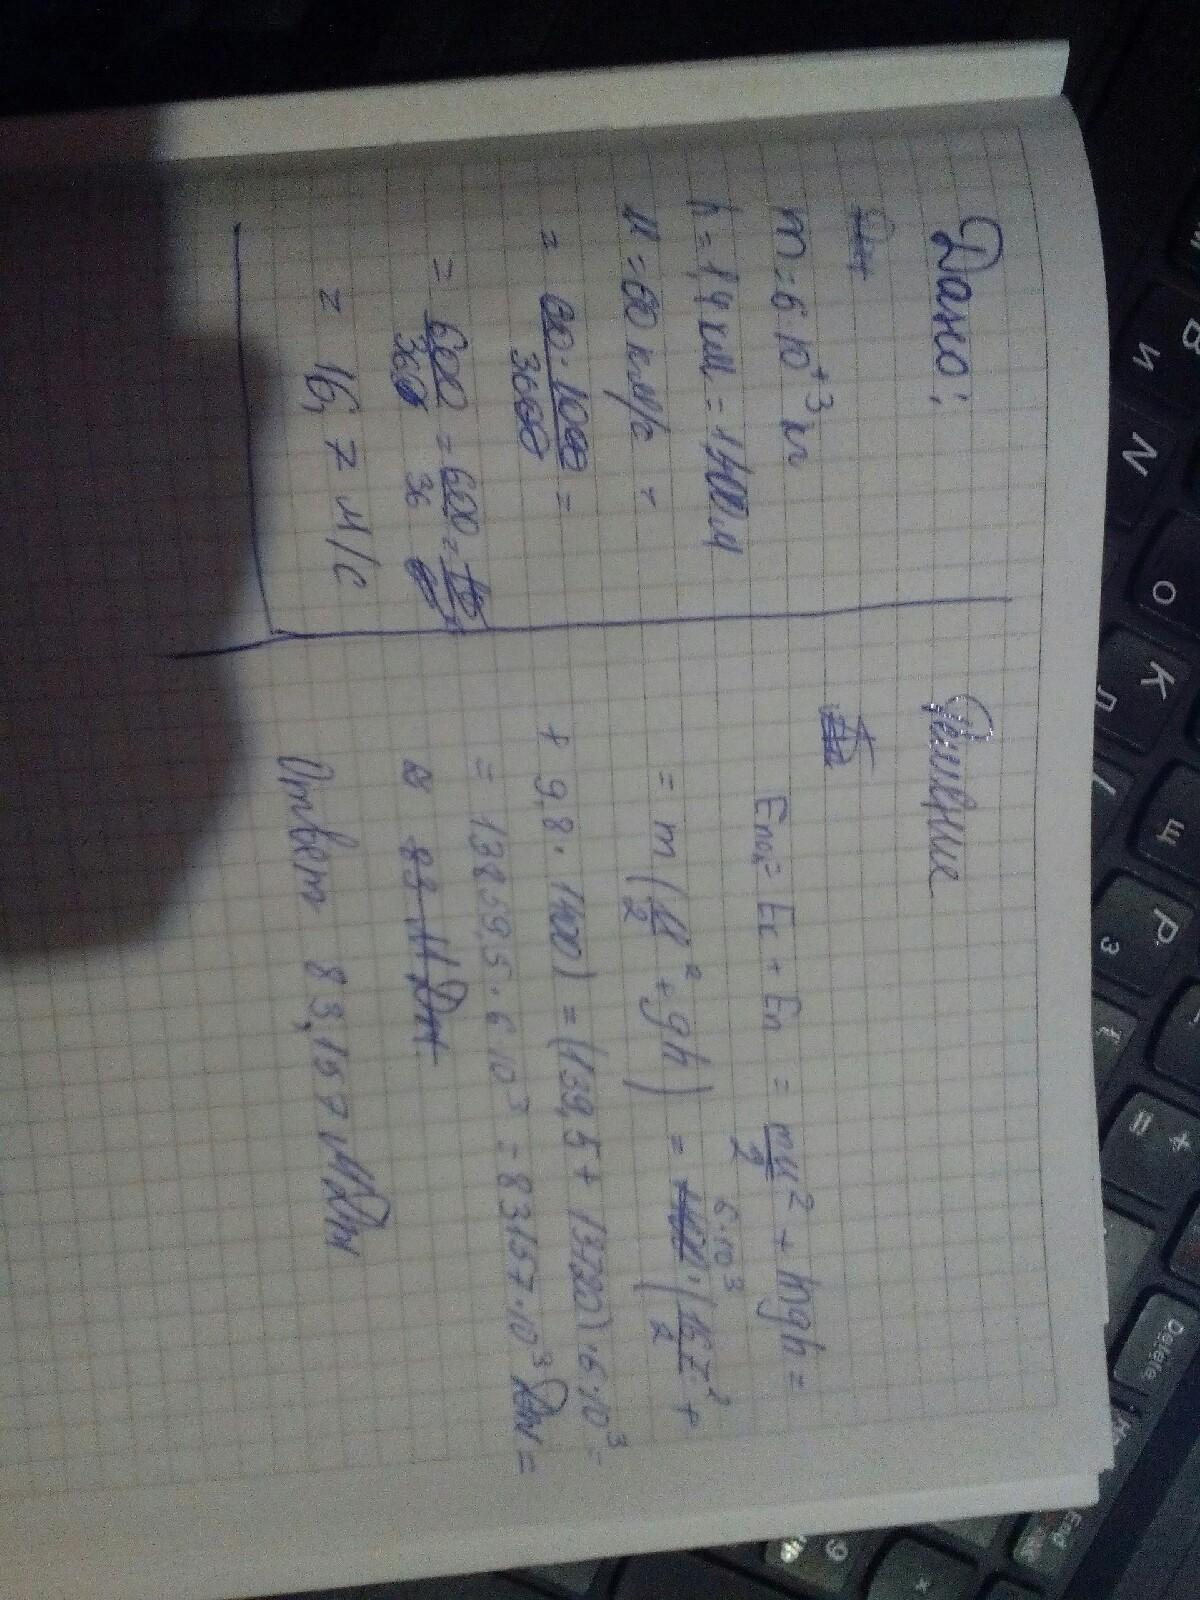 Дано:
m = 6·10⁺³ кг
h = 1,4 км = 1400 м
u = 60 км/с =
= 60·1000/3600 =
= 600/36 = 600/36 =
= 16,7 м/с
Решение
Eпол = Eк + Eп = mu²/2 + mgh =
= m(u²/2 + gh) = 6·10³·(16,7²/2 +
+ 9,8·1400) = (139,5 + 13720)·6·10³ =
= 13859,5·6·10³ = 83157·10³ Дж =
≈ 83 МДж
Ответ 83,157 МДж
В
И
N
О
К
Л
Щ
Р
З
+
=
Delete
End
9